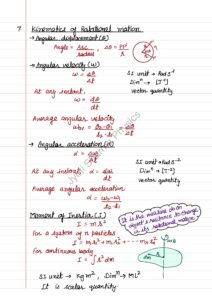 7 Kinematics of Rotational motion
→ Angular displacement (θ)
Angle = arc/radius, Δθ = PP'/r
→ Angular velocity (ω)
ω = Δθ/Δt
SI unit → Rad s⁻¹
Dimⁿ → [T⁻¹]
vector quantity
At any instant,
ω = dθ/dt
Average angular velocity
ωav = θ₂-θ₁/t₂-t₁ = Δθ/Δt
→ Angular acceleration (α)
α = Δω/Δt
SI unit → Rad s⁻²
Dimⁿ → [T⁻²]
vector quantity
At any instant, α = dω/dt
Average angular acceleration
α = ω₂-ω₁/t₂-t₁
Moment of Inertia (I)
I = mr²
It is the measure of an
object's resistance to change
its rotational motion
For a system of n particles
I = m₁r₁² + m₂r₂² + ... mₙrₙ²
For continuous body
I = ∫r²dm
dm
SI unit → Kgm², Dimⁿ → ML²
It is scalar quantity